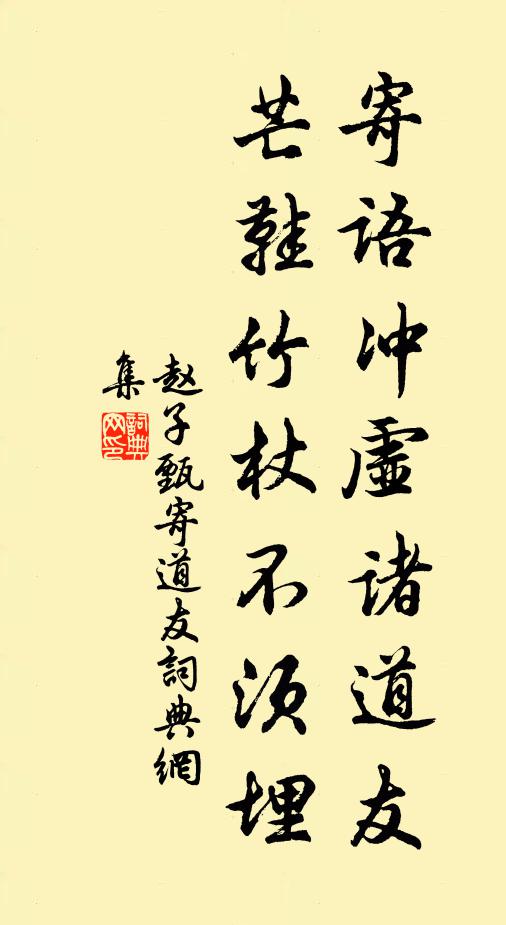 寄语冲虚诸道友
芒鞋竹杖不须埋
赵子甄寄道友詞典網
集
詞典
网印